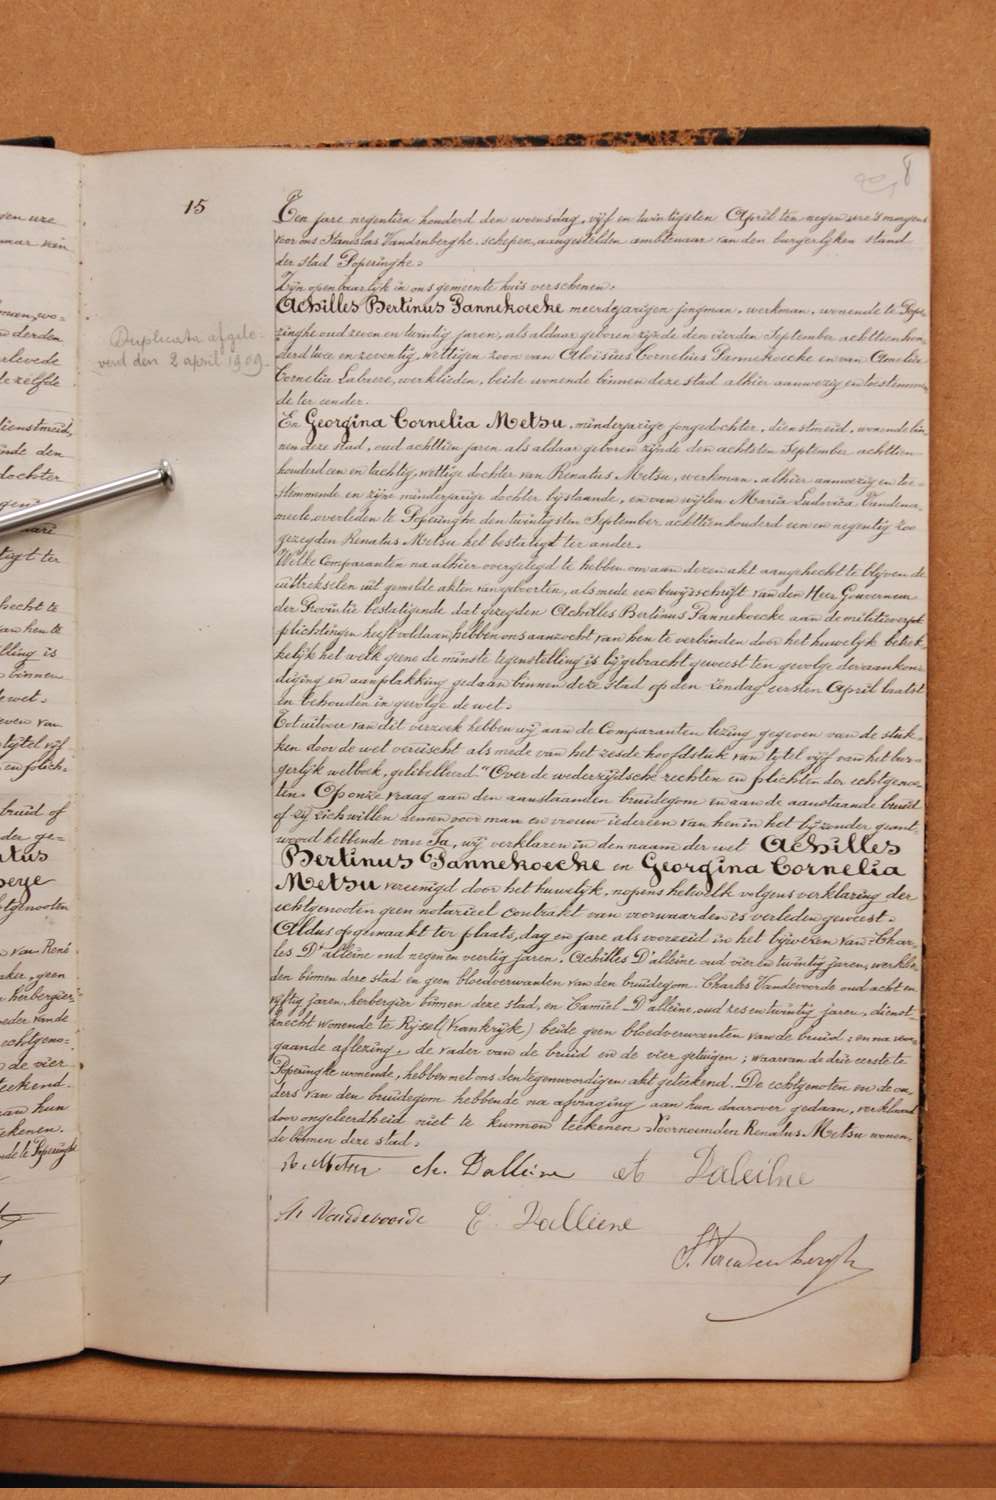 8
15
Ten jare negentien honderd den woensdag, vijf en twintigsten April ten negen ure 's morgens
voor ons Stanislas Vandenberghe, schepen, aangestelden ambtenaar van den burgerlijken stand
der stad Poperinghe.
Zijn openbaarlijk in ons gemeente huis verschenen.
Achilles Bertinus Pannekoecke meerderjarigen jongman, werkman, wonende te Pope-
ringhe oud zeven en twintig jaren, als aldaar geboren zijnde den vierden September achttien hon-
derd twee en zeventig, wettigen zoon van Aloïsius Cornelius Pannekoecke en van Amelie
Cornelia Labaere, werklieden, beide wonende binnen deze stad alhier aanwezig en toestemmen-
de ter eender.
En Georgina Cornelia Metsu, minderjarige jongedochter, dienstmeid, wonende bin-
nen deze stad, oud achttien jaren als aldaar geboren zijnde den achtsten September achttien
honderd een en tachtig, wettige dochter van Renatus Metsu, werkman, alhier aanwezig en toe-
stemmende en zijne minderjarige dochter bijstaande, en van wijlen Maria Ludovica Vandena-
meele, overleden te Poperinghe den twintigsten September achttien honderd een en negentig zoo
gezegden Renatus Metsu het bestatigt ter ander.
Welke Comparanten na alhier overgelegd te hebben om aan dezen akt aangehecht te blijven de
uittrekselen uit gemelde akten van geboorten, als mede een bewijsschrift van den Heer Gouverneur
der Provintie bestatigende dat gezegden Achilles Bertinus Pannekoecke aan de militieverpl
plichtingen heeft voldaan, hebben ons aanzocht van hen te verbinden door het huwelijk betrek-
kelijk het welk geene de minste tegenstelling is bijgebracht geweest ten gevolge der aankon-
diging en aanplakking gedaan binnen deze stad op den zondag eersten April laatst
en behouden in gevolge de wet.
Tot uitvoer van dit verzoek hebben wij aan de Comparanten lezing gegeven van de stuk-
ken door de wet vereischt als mede van het zesde hoofdstuk van tytel vijf van het bur-
gerlijk wetboek, gelibelleerd "Over de wederzijdsche rechten en plichten der echtgenoo-
ten. Op onze vraag aan den aanstaanden bruidegom en aan de aanstaande bruid
of zij zich willen nemen voor man en vrouw iedereen van hen in het bijzonder geant-
woord hebbende van Ja, wij verklaren in den naam der wet Achilles
Bertinus Pannekoecke en Georgina Cornelia
Metsu vereenigd door het huwelijk, nopens hetwelk volgens verklaring der
echtgenooten geen notarieel contrakt van voorwaarden is verleden geweest.
Aldus opgemaakt ter plaats, dag en jare als voorzeid in het bijwezen van Char-
les D'alleine oud negen en veertig jaren, Achilles D'alleine oud vier en twintig jaren, werklie-
den binnen deze stad en geen bloedverwanten van den bruidegom, Charles Vandevoorde oud acht en
vijftig jaren, herbergier binnen deze stad, en Camiel D'alleine, oud zes en twintig jaren, dienst-
knecht wonende te Rijsel (Vrankrijk) beide geen bloedverwanten van de bruid; en na voor-
gaande aflezing, de vader van de bruid en de vier getuigen; waarvan de drie eerste te
Poperinghe wonende, hebben met ons den tegenwoordigen akt geteekend. De echtgenoten en de ou-
ders van den bruidegom hebbende na afvraging aan hun daarover gedaan, verklaard
door ongeleerdheid niet te kunnen teekenen. Voornoemden Renatus Metsu wonen-
de binnen deze stad.
R. Metsu ch. Dalleine A Daleilne
Duplicata afgele-
verd den 2 april 1909.
Ch Vandevoorde C. Dalliene
S. Vandenberghe